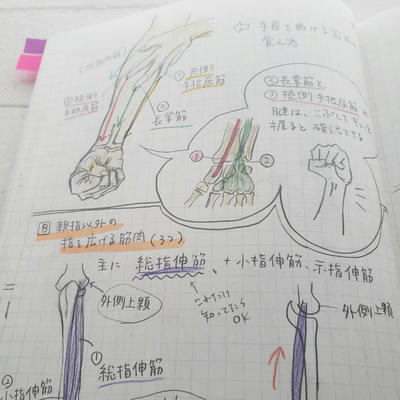 ⇦ 手指を曲げる筋肉の
覚え方
① 尺側
手根屈筋
③ 橈側
手根屈筋
② 長掌筋
② 長掌筋と
③ 橈側手根屈筋の
腱は、こぶしをぎゅっと
握ると確認できる
③
②
B 親指以外の
指を広げる筋肉（3つ）
主に 総指伸筋、+ 小指伸筋、示指伸筋
これだけ
知ってたら
OK
外側上顆
外側上顆
①
総指伸筋
②
小指伸筋